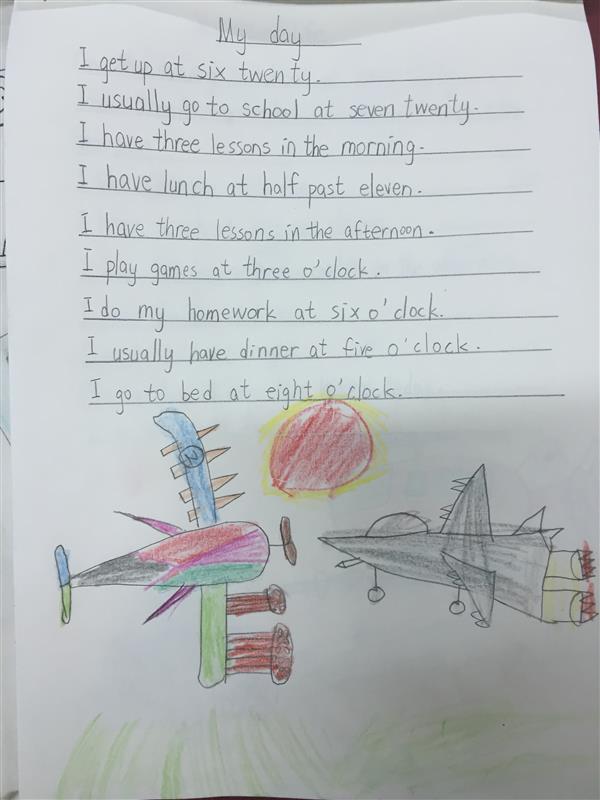 My day
I get up at six twenty.
I usually go to school at seven twenty.
I have three lessons in the morning.
I have lunch at half past eleven.
I have three lessons in the afternoon.
I play games at three o'clock.
I do my homework at six o'clock.
I usually have dinner at five o'clock.
I go to bed at eight o'clock.
2